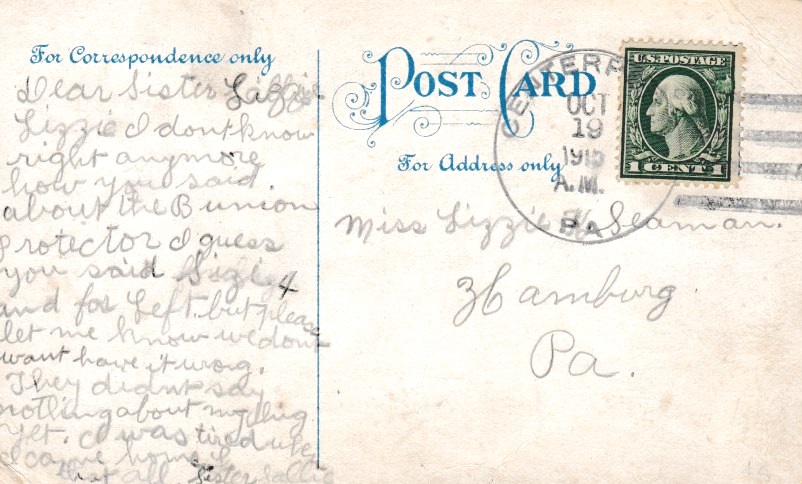 For Correspondence only
Dear Sister Lizzie
Lizzie I dont know
right anymore
how you said
about the Bunion
protector I guess
you said Size 4
and for Left. but please
let me know we dont
want have it wrong.
They didnt say
nothing about my thing
yet. I was tired when
I came home
that all Sister Sallie
POST CARD
For Address only
CENTERP
OCT
19
A.M.
PA.
U.S. POSTAGE
1 CENT 1
Miss Lizzie Seaman.
Hamburg
Pa.